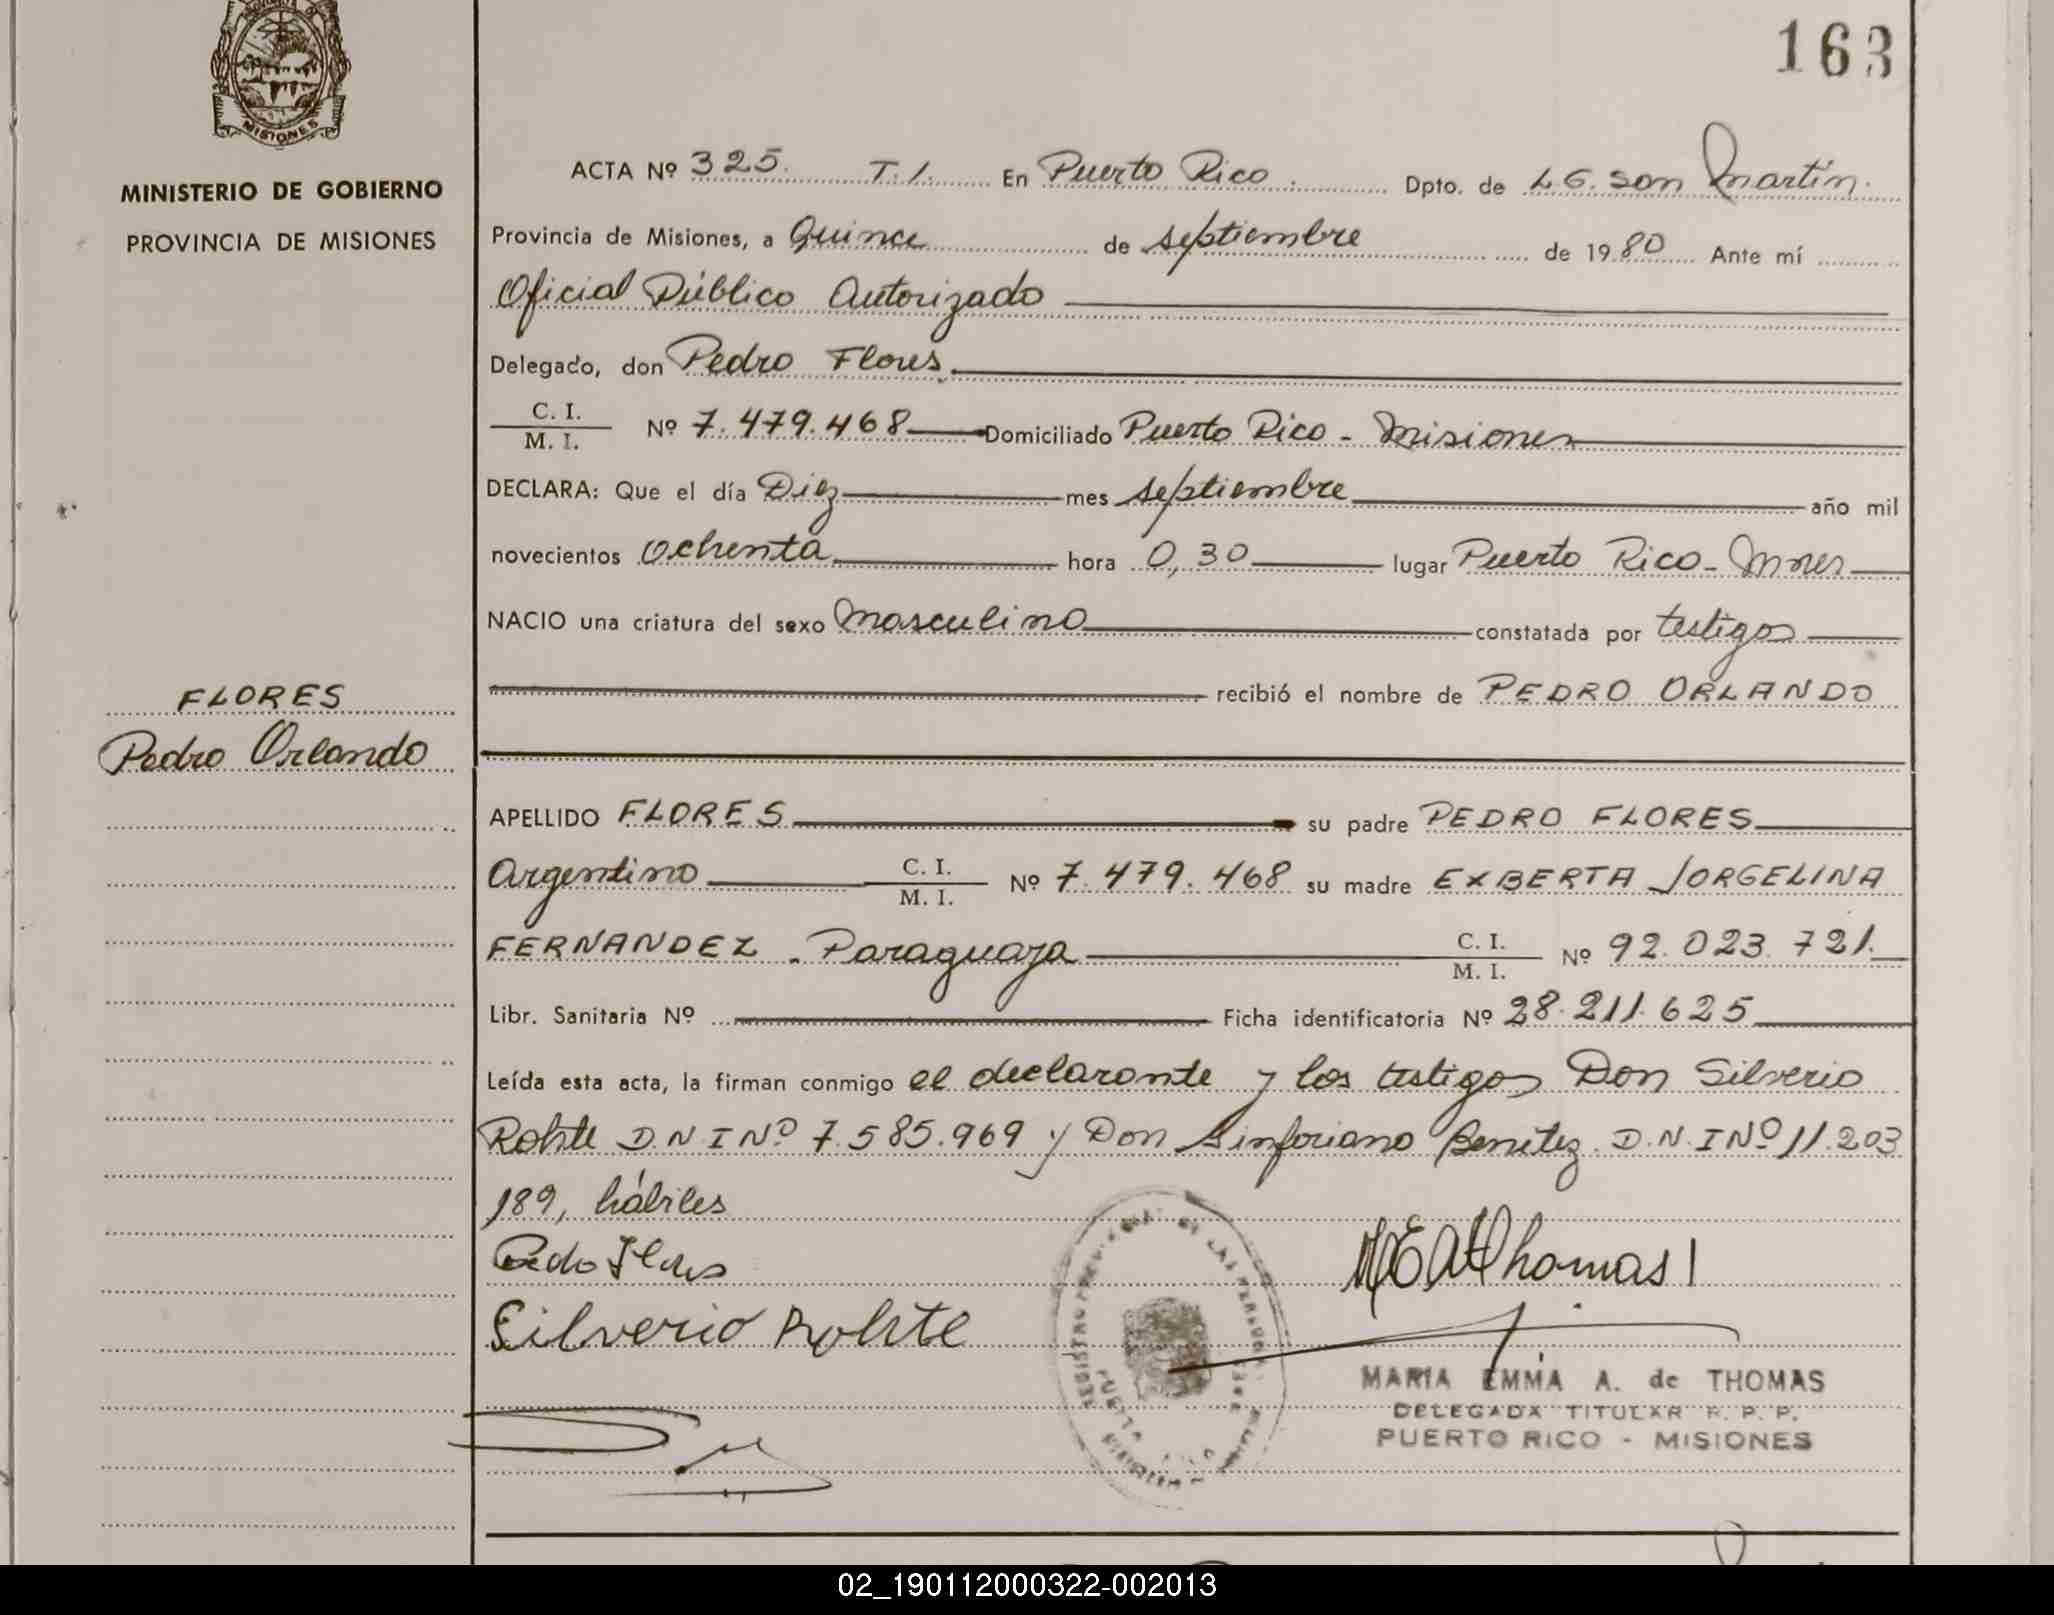 163
MISIONES
MINISTERIO DE GOBIERNO
PROVINCIA DE MISIONES
FLORES
Pedro Orlando
ACTA Nº 325. T. 1. En Puerto Rico. Dpto. de L. G. San Martín.
Provincia de Misiones, a Quince de septiembre de 1980 Ante mí
Oficial Público Autorizado
Delegado, don Pedro Flores.
C. I.
M. I. Nº 7.479.468 Domiciliado Puerto Rico - Misiones
DECLARA: Que el día Diez mes septiembre año mil
novecientos ochenta hora 0,30 lugar Puerto Rico - Mnes
NACIO una criatura del sexo masculino constatada por testigos
recibió el nombre de PEDRO ORLANDO
APELLIDO FLORES su padre PEDRO FLORES
Argentino C. I.
M. I. Nº 7.479.468 su madre EXBERTA JORGELINA
FERNANDEZ. Paraguaya C. I.
M. I. Nº 92.023.721.
Libr. Sanitaria Nº Ficha identificatoria Nº 28.211.625
Leída esta acta, la firman conmigo el declarante y los testigos Don Silverio
Rohte D.N.I Nº 7.585.969 y Don Sinforiano Benitez. D.N.I Nº 11.203
189, hábiles
Pedo Flores
Silverio Rohte
MEAThomas
MARIA EMMA A. de THOMAS
DELEGADA TITULAR R. P. P.
PUERTO RICO - MISIONES
02_190112000322-002013